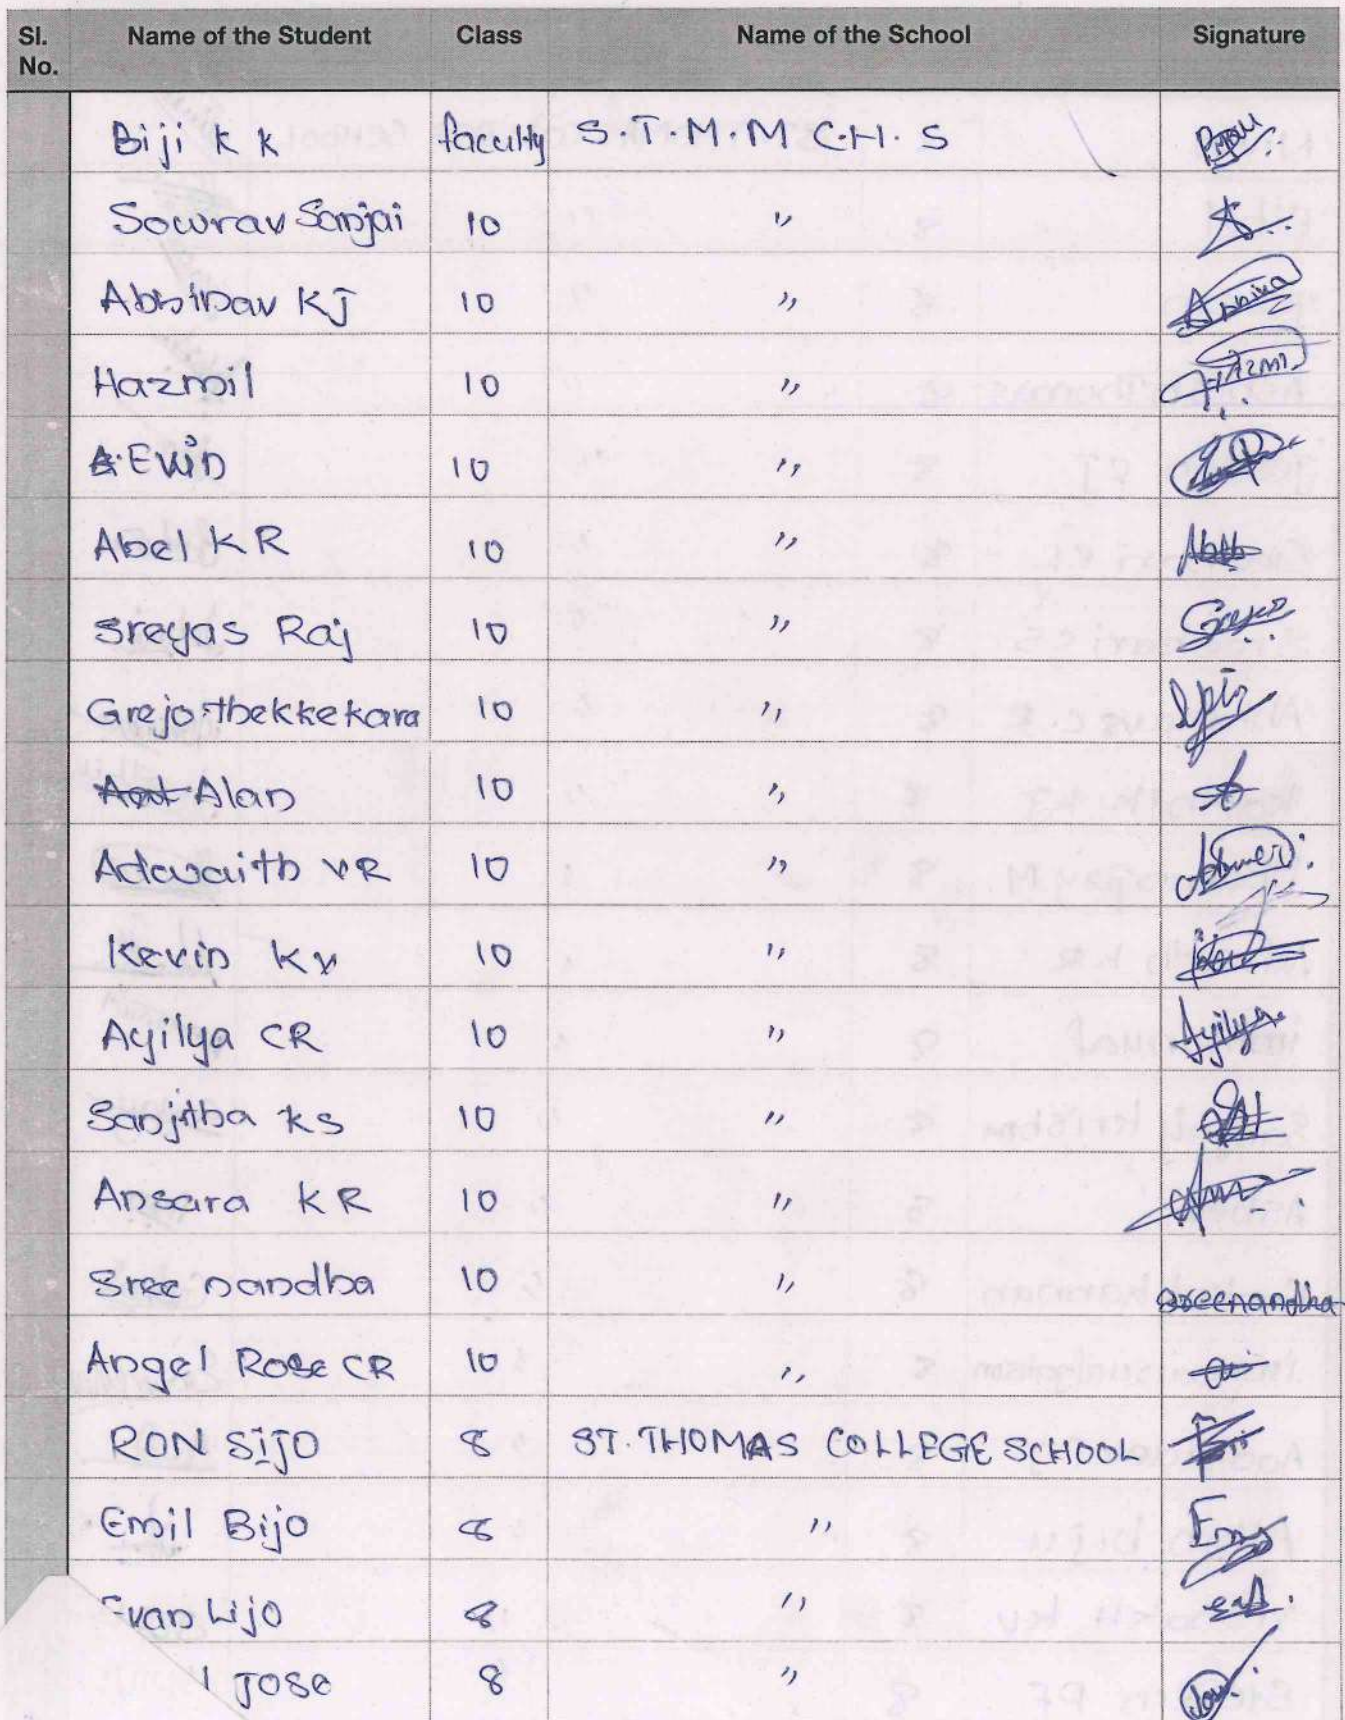 Sl. No. Name of the Student Class Name of the School Signature
Biji K K faculty S.T.M.M C.H.S
Sourav Sanjai 10 "
Abhinav KJ 10 "
Hazmil 10 "
Evin 10 "
Abel K R 10 "
Sreyas Raj 10 "
Grejo thekkekara 10 "
Alan 10 "
Adwaith VR 10 "
Kevin KV 10 "
Ayilya CR 10 " Ayilya
Sanjitha KS 10 "
Ansara KR 10 "
Sree nandha 10 " Sreenandha
Angel Rose CR 10 "
RON SIJO 8 ST. THOMAS COLLEGE SCHOOL
Emil Bijo 8 "
Evan Lijo 8 "
Jose 8 "